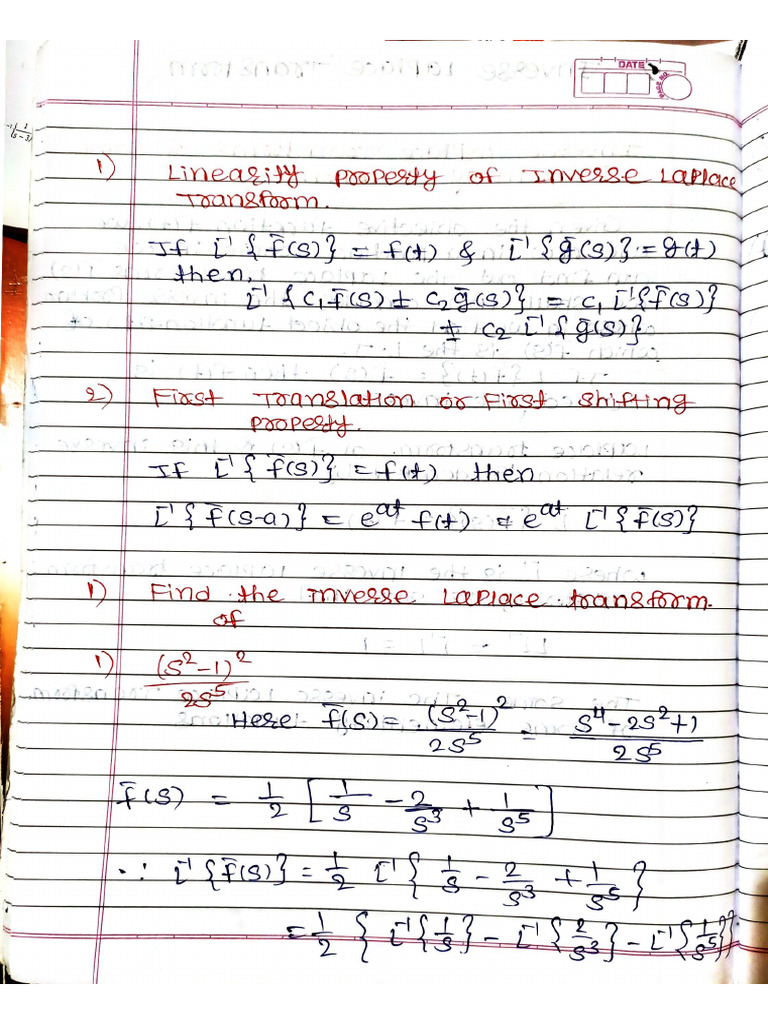 DATE
PAGE NO.
1) Linearity property of Inverse Laplace
Transform.
If L⁻¹{f̄(s)} = f(t) & L⁻¹{ḡ(s)} = g(t)
then,
L⁻¹{c₁f̄(s) ± c₂ḡ(s)} = c₁ L⁻¹{f̄(s)}
± c₂ L⁻¹{ḡ(s)}
2) First Translation or First Shifting
property.
If L⁻¹{f̄(s)} = f(t) then
L⁻¹{f̄(s-a)} = e^at f(t) = e^at L⁻¹{f̄(s)}
1) Find the Inverse Laplace transform.
of
1) (s²-1)²/2s⁵
Here f̄(s) = (s²-1)²/2s⁵ = s⁴-2s²+1/2s⁵
f̄(s) = 1/2 [1/s - 2/s³ + 1/s⁵]
∴ L⁻¹{f̄(s)} = 1/2 L⁻¹{1/s - 2/s³ + 1/s⁵}
= 1/2 {L⁻¹{1/s} - L⁻¹{2/s³} - L⁻¹{1/s⁵}}